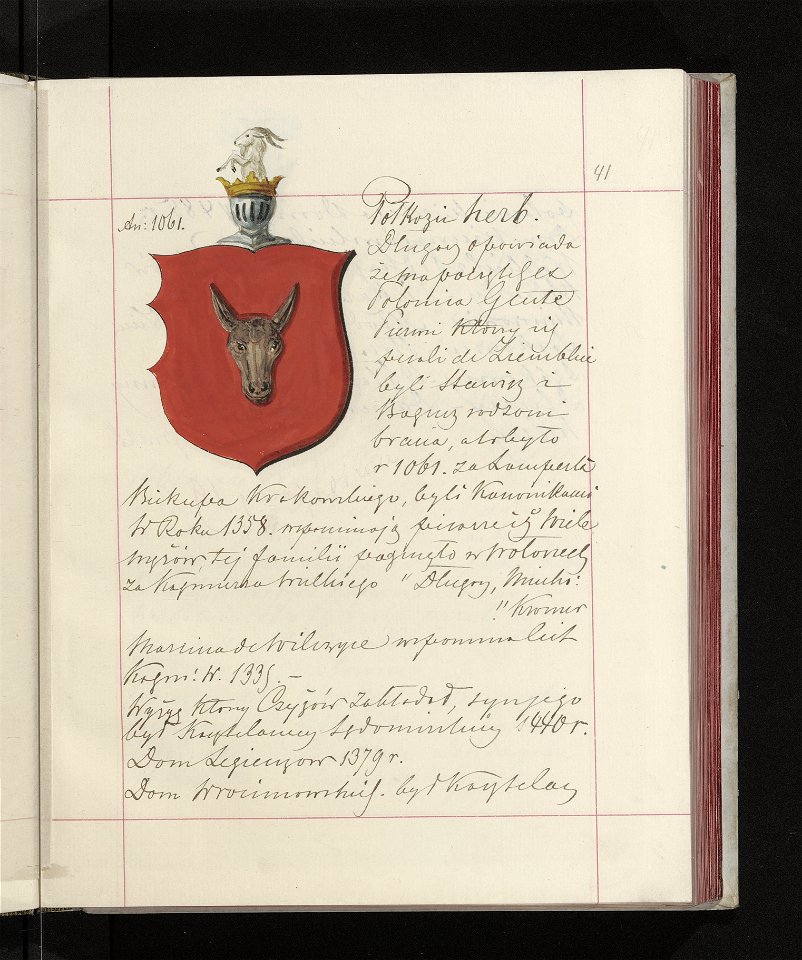 41
An: 1061.
Połkozii herb.
Długosz opowiada
że ma początek ex
Polonica Gente
Pierwsi którzy się
pisali de Ziemblice
byli Stawisz i
Bogusz rodzoni
bracia, a to było
r 1061. za Lamperta
Biskupa Krakowskiego, byli Kanonikami
W Roku 1358. wspominają pisarze iż wiele
mężów tej familii zaginęło w Wołoszech
za Kazimierza wielkiego " Długosz, Miech:
" Kromer
Marcina de Wilczyce wspomina list
Kazm: W. 1335. –
Wyżyg który Czyżów zakładał, syn jego
był Kasztelanem Sędomirskim 1440 r.
Dom Ligienzow 1379 r.
Dom Wrocimowskich. był Kasztelan